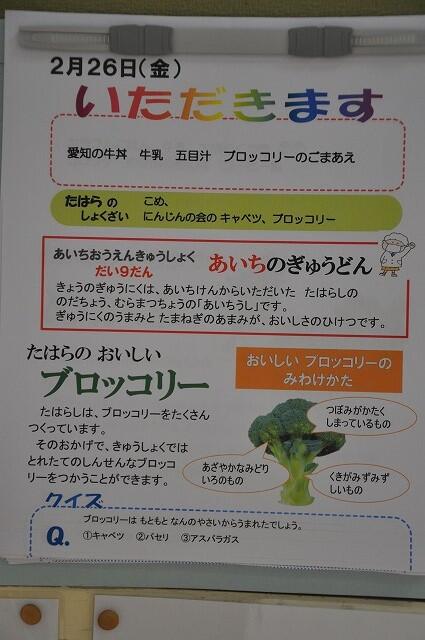 2月26日(金)
いただきます
愛知の牛丼　牛乳　五目汁　ブロッコリーのごまあえ
たはら の
しょくざい
こめ、
にんじんの会の キャベツ、ブロッコリー
あいちおうえんきゅうしょく
だい9だん
あいちのぎゅうどん
きょうのぎゅうにくは、あいちけんからいただいた　たはらしの
のだちょう、むらまつちょうの「あいちうし」です。
ぎゅうにくのうまみと たまねぎのあまみが、おいしさのひけつです。
たはらの おいしい
ブロッコリー
たはらしは、ブロッコリーをたくさん
つくっています。
そのおかげで、きゅうしょくでは
とれたてのしんせんなブロッコ
リーをつかうことができます。
おいしい ブロッコリーの
みわけかた
つぼみがかたく
しまっているもの
あざやかなみどり
いろのもの
くきがみずみず
しいもの
クイズ
Q.
ブロッコリーは もともと なんのやさいからうまれたでしょう。
①キャベツ　②パセリ　③アスパラガス